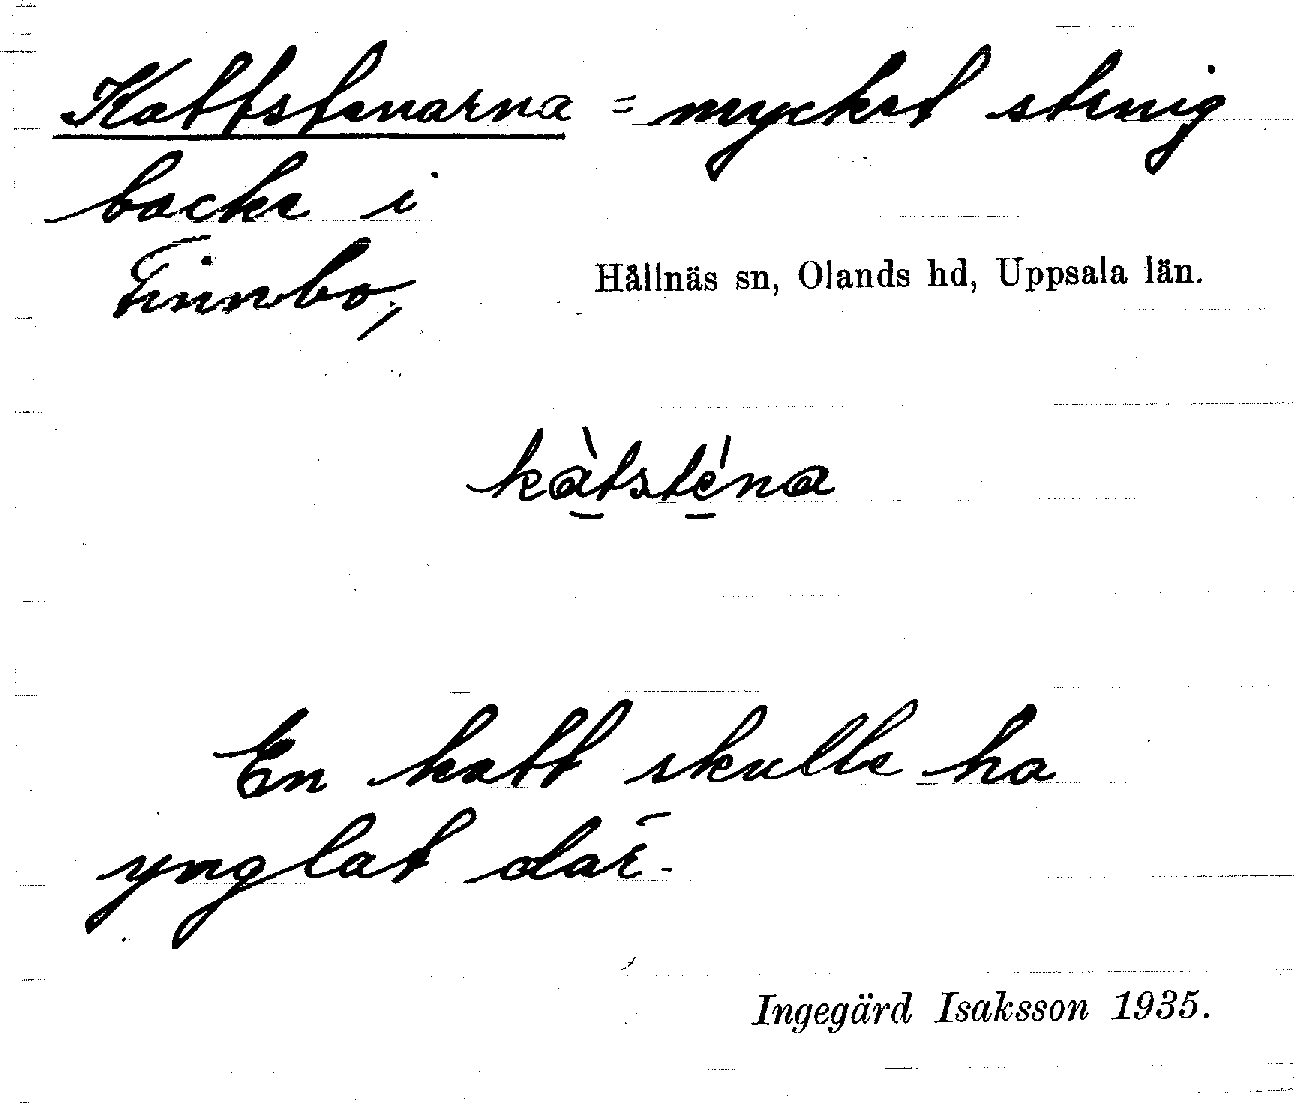 Kattstenarna = mycket stenig
backe i
Finnbo, Hållnäs sn, Olands hd, Uppsala län.
kàtsténa
En katt skulle ha
ynglat där.
Ingegärd Isaksson 1935.